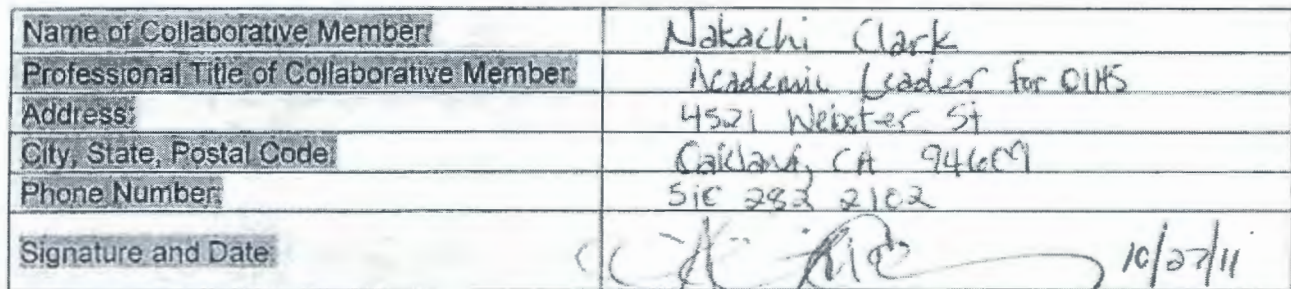 Name of Collaborative Member: Nakachi Clark
Professional Title of Collaborative Member: Academic Leader for OIHS
Address: 4521 Webster St
City, State, Postal Code: Oakland, CA 94609
Phone Number: 510 282 2102
Signature and Date: 10/27/11